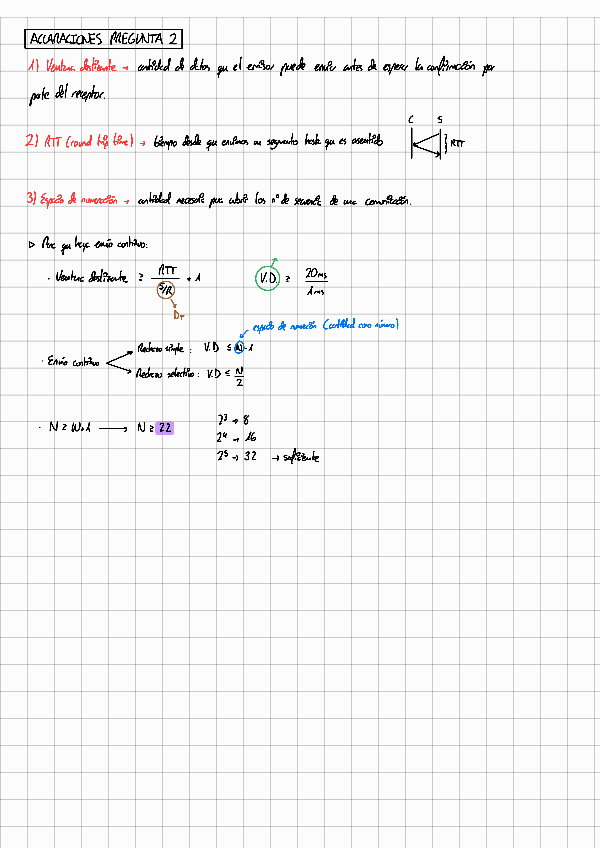 ACLARACIONES PREGUNTA 2
1) Ventana deslizante → cantidad de datos que el emisor puede enviar antes de esperar la confirmación por
parte del receptor.
2) RTT (round trip time) → tiempo desde que enviamos un segmento hasta que es asentido
C S
RTT
3) Espacio de numeración → cantidad necesaria para cubrir los nº de secuencia de una comunicación.
▷ Para que haya envío continuo:
· Ventana deslizante ≥ RTT / (S/R) + 1
V.D. ≥ 20ms / 1ms
DT
espacio de numeración (cantidad como mínimo)
· Envío continuo
Rechazo simple : V.D ≤ N-1
Rechazo selectivo : V.D ≤ N/2
· N ≥ W+1 → N ≥ 22
2³ → 8
2⁴ → 16
2⁵ → 32 → suficiente